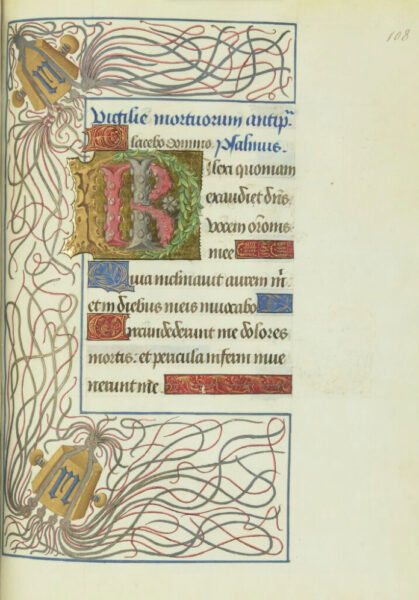 108
Vigilie mortuorum antiph̄.
Placebo domino. Psalmus.
Dilexi quoniam
exaudiet dn̄s
vocem or̄onis
mee
Quia inclinavit aurem m̄.
et in diebus meis invocabo
Circundederunt me dolores
mortis: et pericula inferni inve
nerunt me.